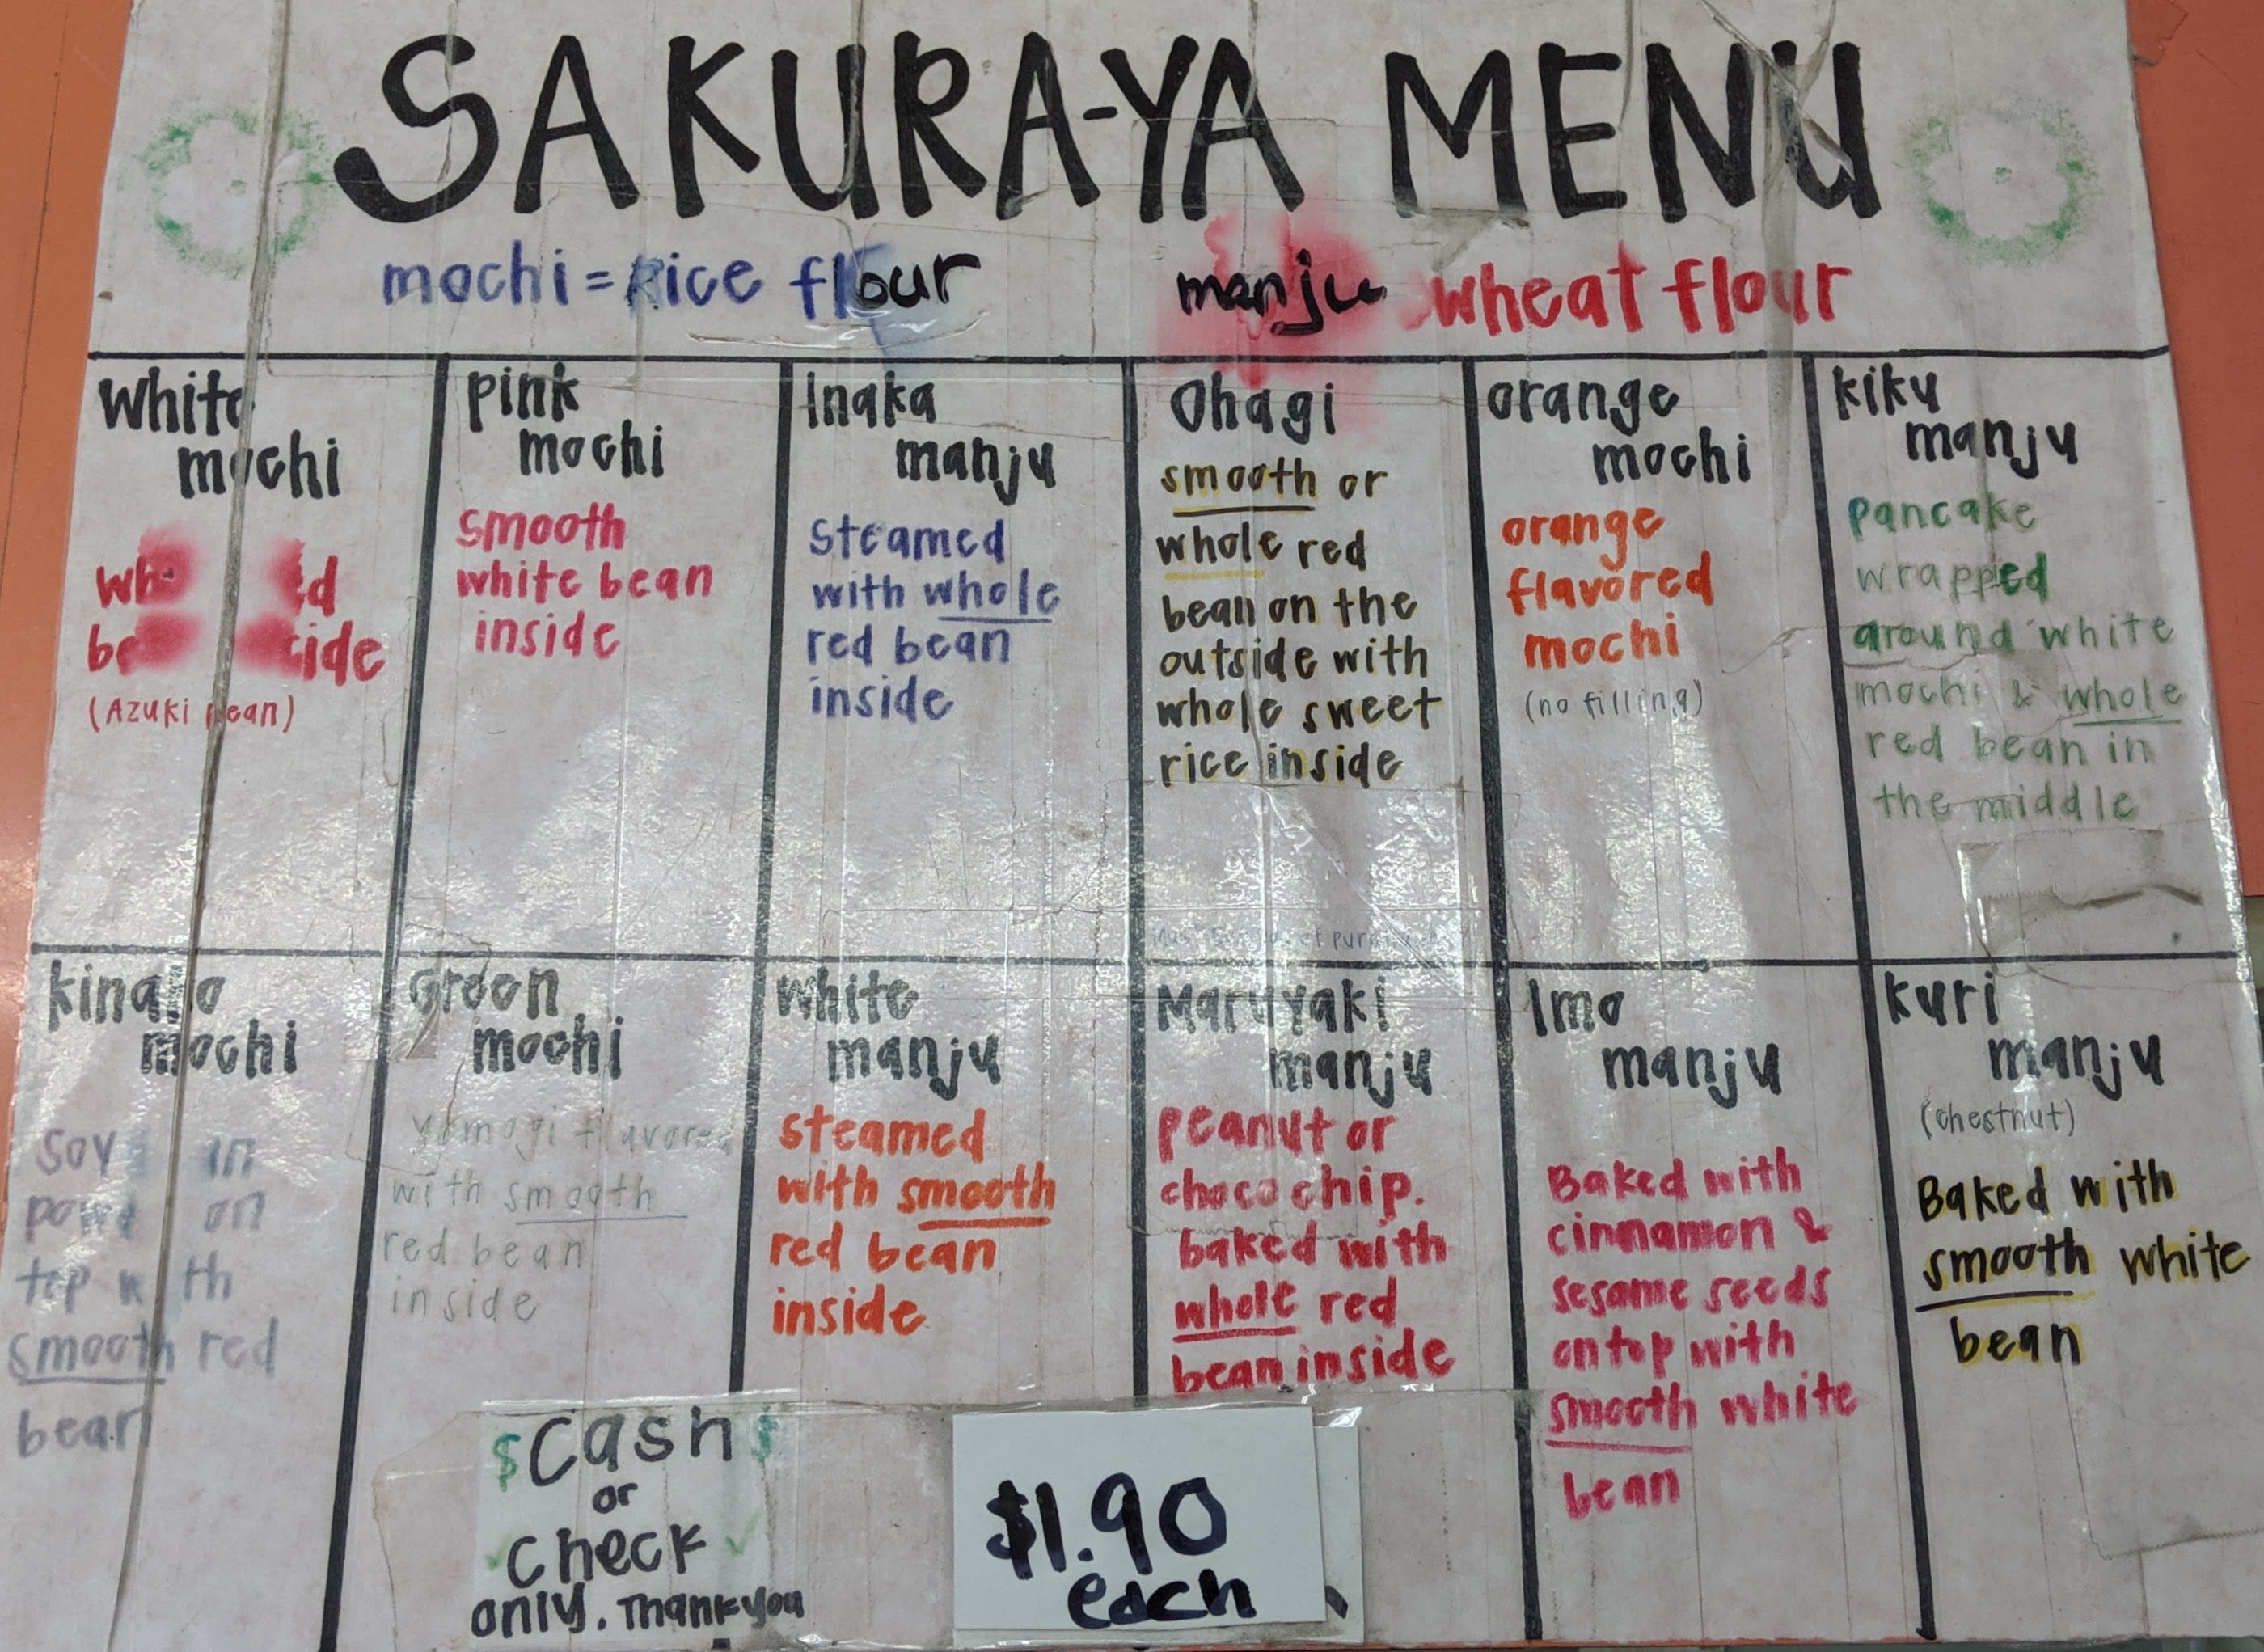 SAKURA-YA MENU
mochi = Rice flour
manju wheat flour
white
mochi
bean inside
(Azuki bean)
pink
mochi
smooth
white bean
inside
Inaka
manju
steamed
with whole
red bean
inside
Ohagi
smooth or
whole red
bean on the
outside with
whole sweet
rice inside
orange
mochi
orange
flavored
mochi
(no filling)
kiku
manju
pancake
wrapped
around white
mochi & whole
red bean in
the middle
kinako
mochi
soy in
on
top with
smooth red
bean
Green
mochi
yomogi flavored
with smooth
red bean
inside
white
manju
steamed
with smooth
red bean
inside
Maruyaki
manju
peanut or
choco chip.
baked with
whole red
bean inside
Imo
manju
Baked with
cinnamon &
sesame seeds
on top with
smooth white
bean
kuri
manju
(chestnut)
Baked with
smooth white
bean
$Cash$
or
check
only. Thank you
$1.90
each